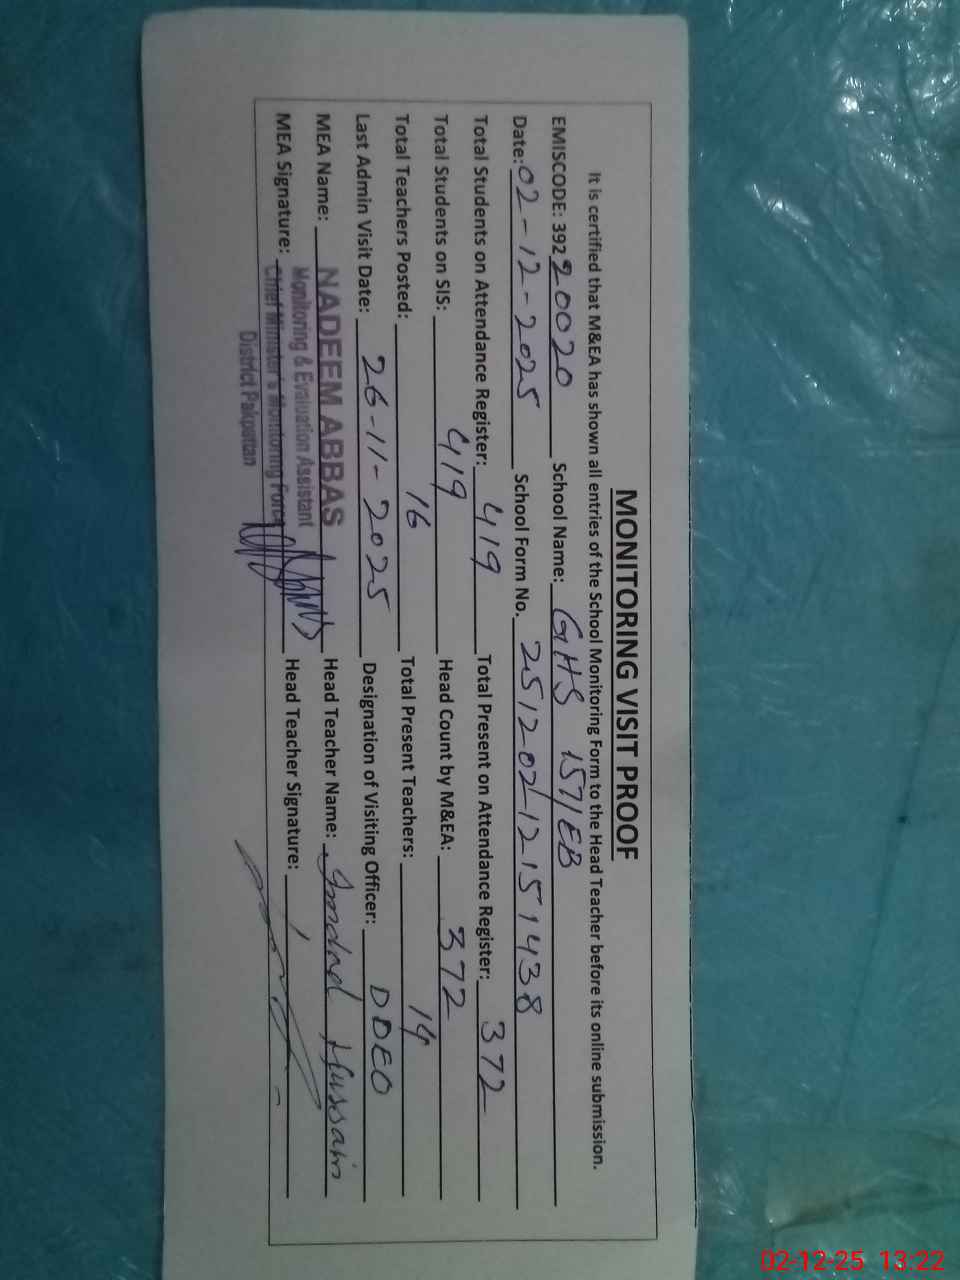 MONITORING VISIT PROOF
It is certified that M&EA has shown all entries of the School Monitoring Form to the Head Teacher before its online submission.
EMISCODE: 39220020 School Name: GHS 157/EB
Date: 02-12-2025 School Form No. 25120212151438
Total Students on Attendance Register: 419 Total Present on Attendance Register: 372
Total Students on SIS: 419 Head Count by M&EA: 372
Total Teachers Posted: 16 Total Present Teachers: 14
Last Admin Visit Date: 26-11-2025 Designation of Visiting Officer: DDEO
MEA Name: NADEEM ABBAS Head Teacher Name: Hussain
Monitoring & Evaluation Assistant
MEA Signature: Chief Minister's Monitoring Force Head Teacher Signature:
District Pakpattan
02-12-25 13:22